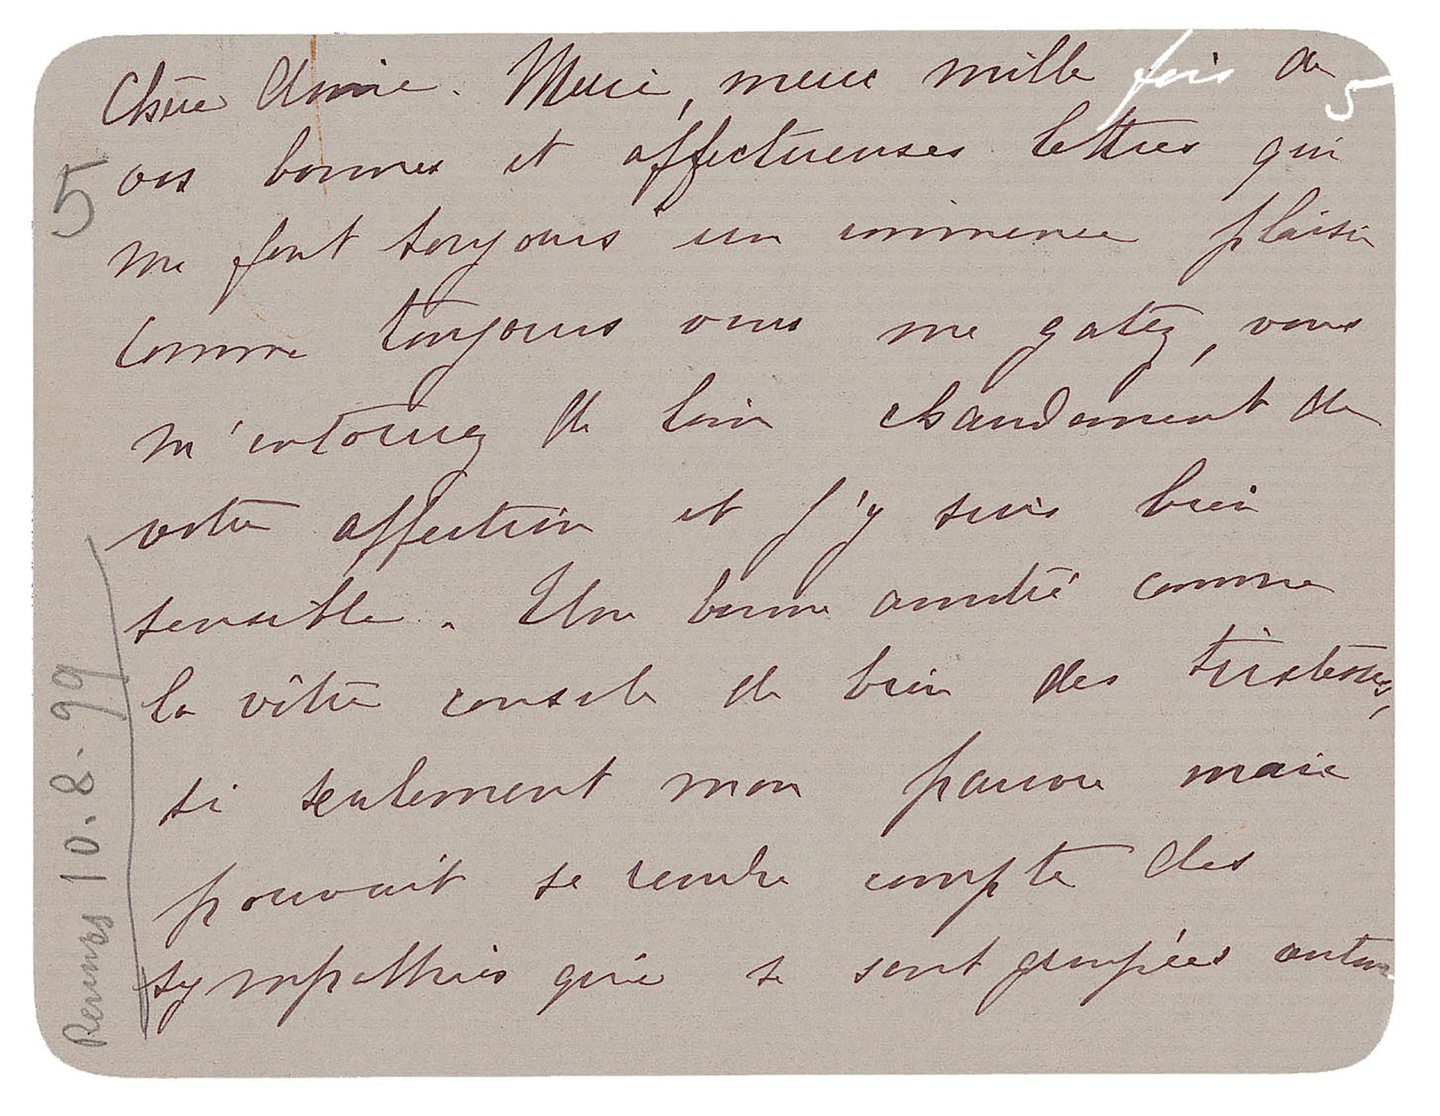 Chère Amie. Merci, merci mille fois de
5
5 vos bonnes et affectueuses lettres qui
me font toujours un immense plaisir
comme toujours vous me gatez, vous
m'entourez de loin chaudement de
votre affection et j'y suis bien
sensible. Une bonne amitié comme
la vôtre console de bien des tristesses,
si seulement mon pauvre mari
pouvait se rendre compte des
sympathies qui se sont groupées autour
Rennes 10.8.99